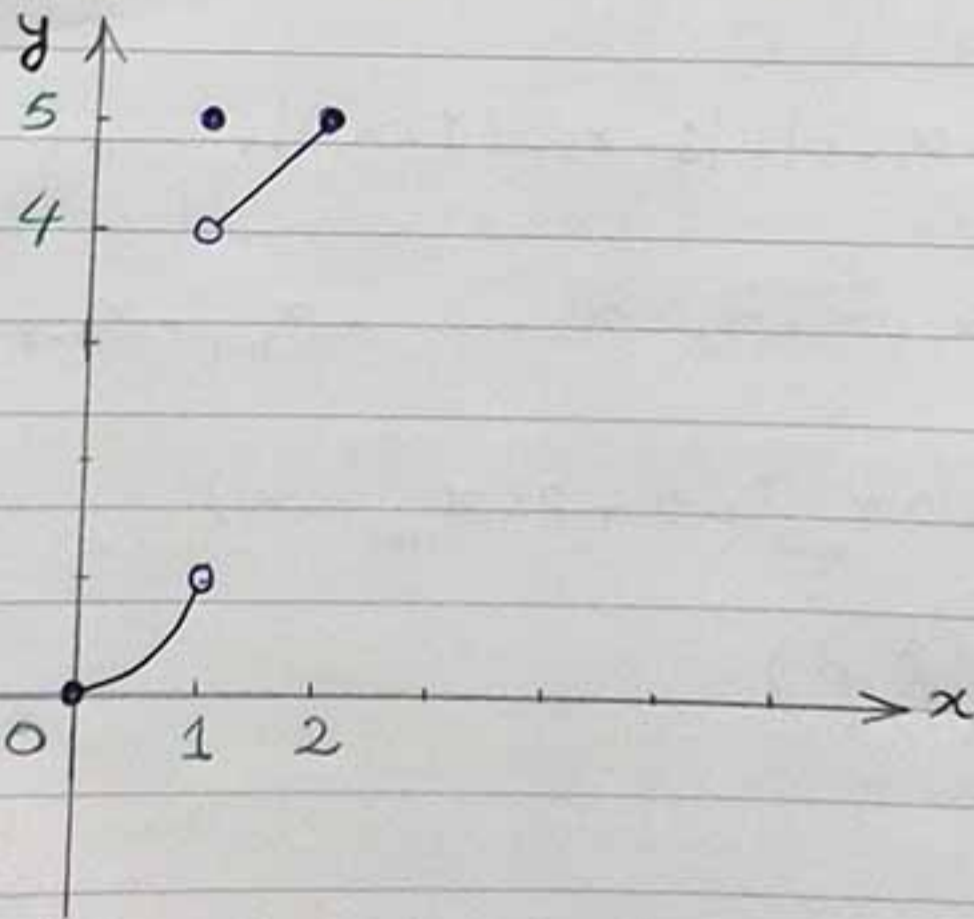 y
5
4
0 1 2 x